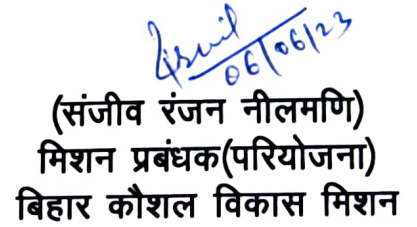 06/06/23
(संजीव रंजन नीलमणि)
मिशन प्रबंधक(परियोजना)
बिहार कौशल विकास मिशन